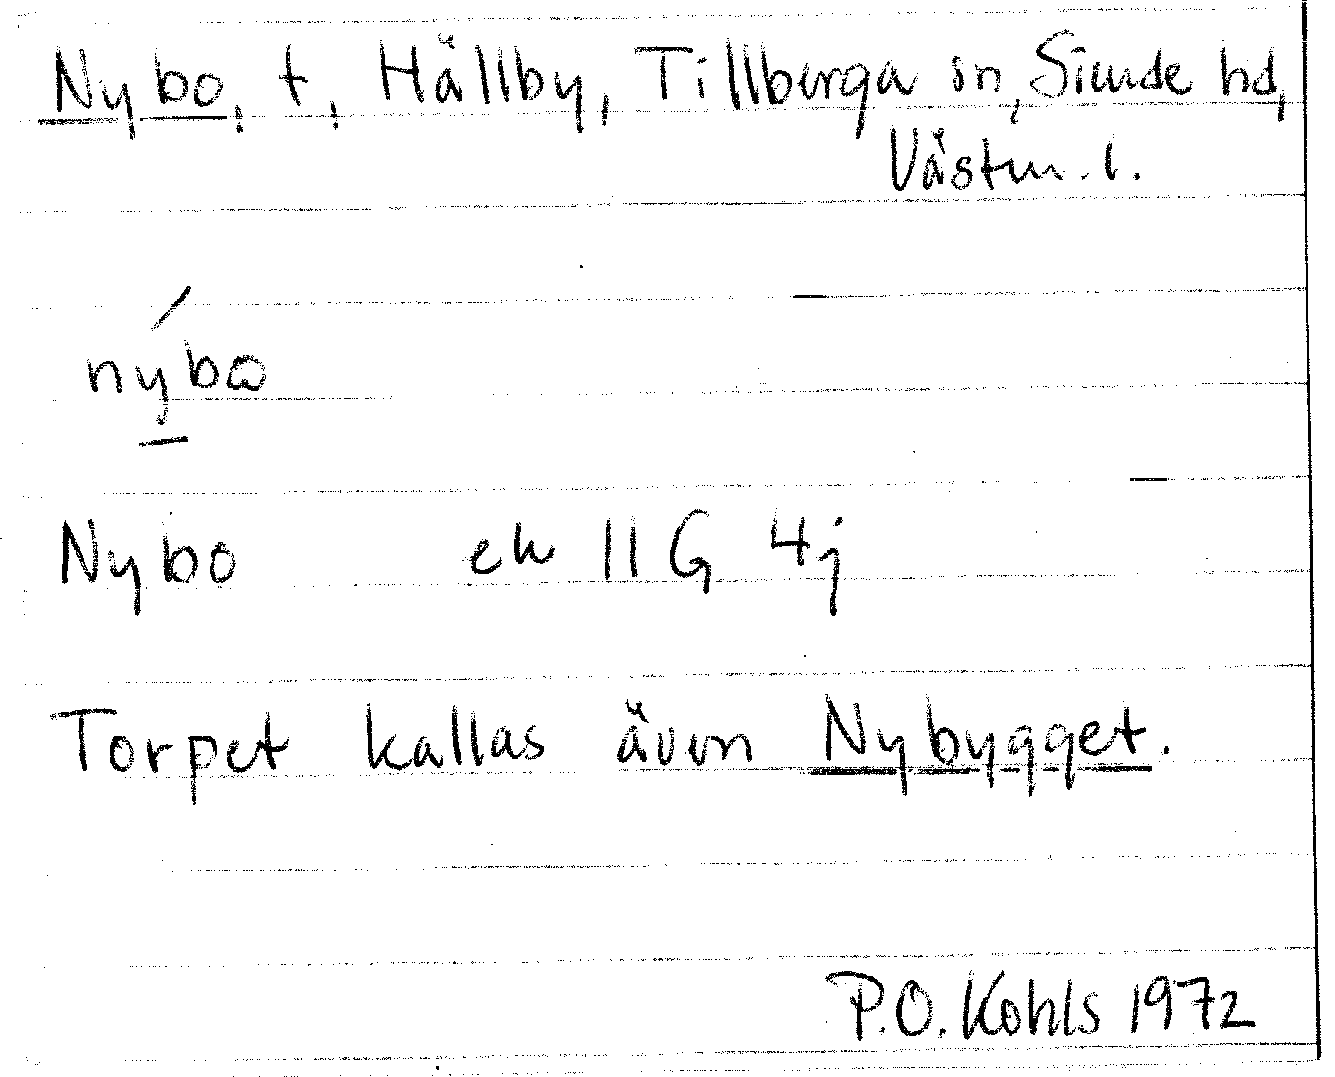 Nybo, t, Hällby, Tillberga sn, Siende hd,
Västm. l.
nýbo
Nybo ek 11G 4j
Torpet kallas även Nybygget.
P.O. Kohls 1972